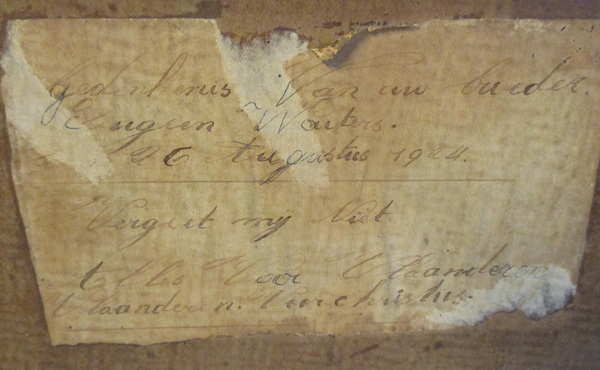 Gedenkenis Van uw broeder.
Eugeen Wauters.
26 Augustus 1924.
Vergeet my Niet.
Alles Voor Vlaanderen
Vlaanderen. Voor christus.